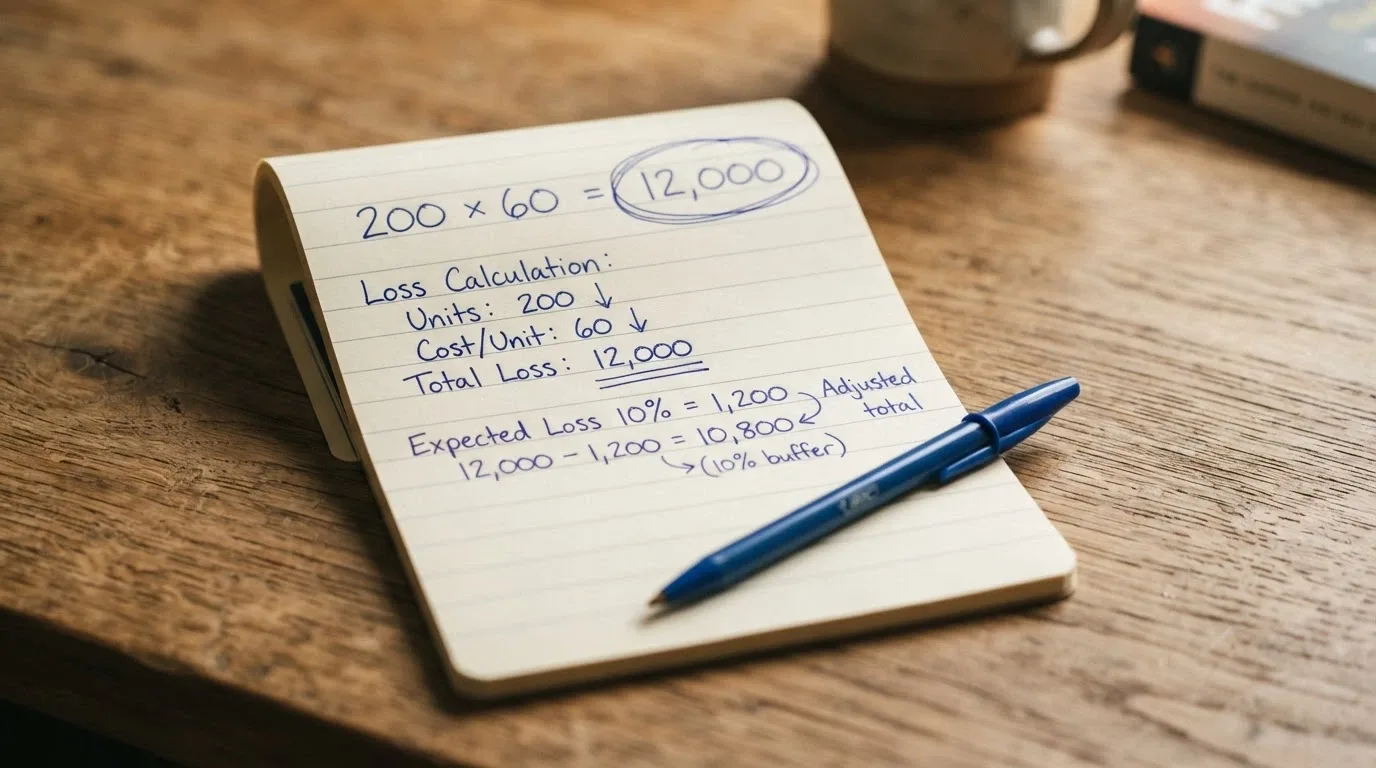 200 × 60 = 12,000
Loss Calculation:
Units: 200 ↓
Cost/Unit: 60 ↓
Total Loss: 12,000
Expected Loss 10% = 1,200
Adjusted
total
12,000 − 1,200 = 10,800
(10% buffer)